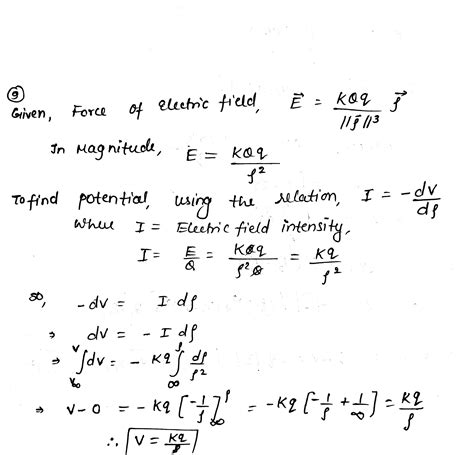 ⑨
Given, Force of electric field, E⃗ = KQq / ||ρ⃗||³ ρ⃗
In Magnitude, E = KQq / ρ²
To find potential, using the relation, I = -dv/dρ
where I = Electric field intensity,
I = E/Q = KQq / ρ²Q = Kq / ρ²
so, -dv = I dρ
⇒ dv = - I dρ
⇒ ∫_{V∞}^{V} dv = - Kq ∫_{∞}^{ρ} dρ/ρ²
⇒ V-0 = -Kq [-1/ρ]_{∞}^{ρ} = -Kq [-1/ρ + 1/∞] = Kq/ρ
∴ V = Kq/ρ